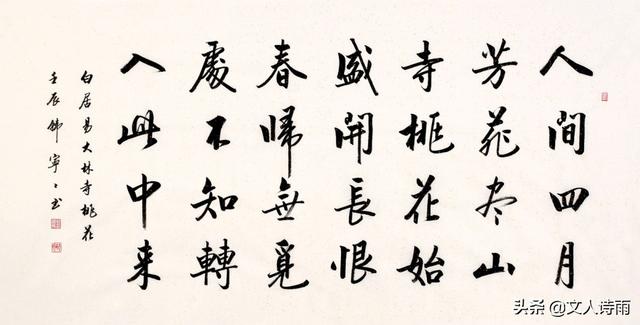 人間四月
芳菲尽山
寺桃花始
盛開長恨
春帰無覓
處不知轉
入此中来
白居易大林寺桃花
壬辰韩寧〻书
头条 @文人诗雨